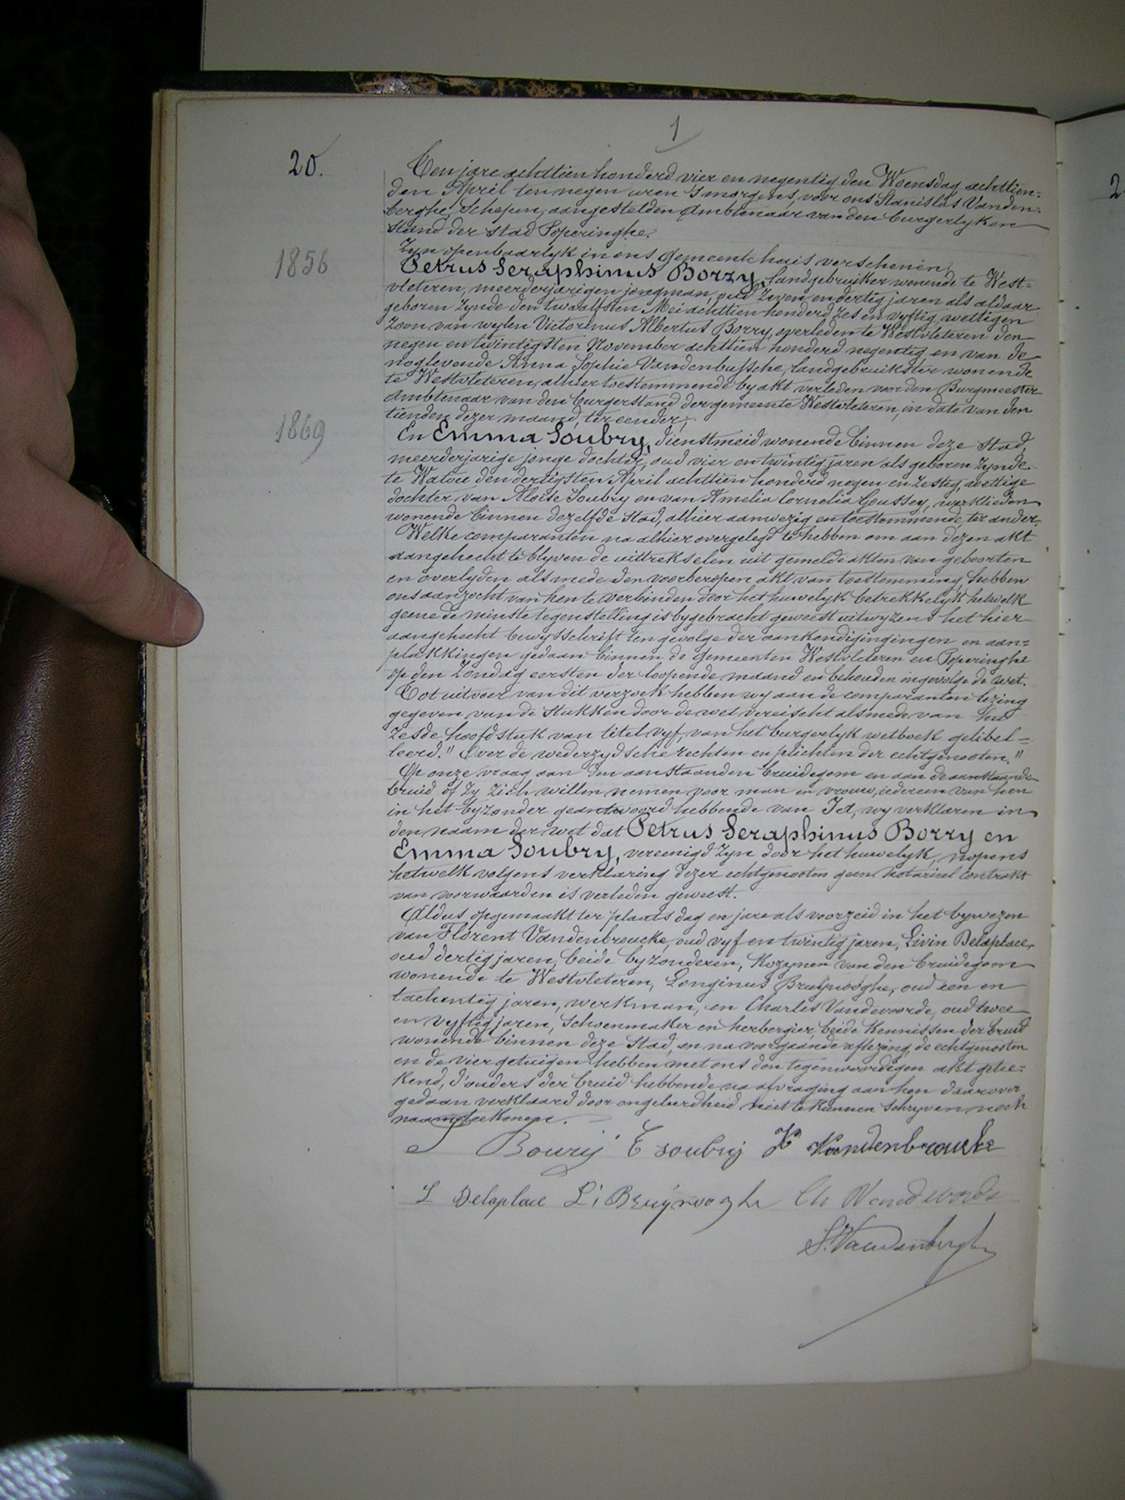 1
20.
Ten jare achttien honderd vier en negentig den Woensdag achttien-
den April ten negen uren 's morgens, voor ons Stanislas Vanden-
berghe, Schepen, aangestelden Ambtenaar van den burgerlyken
stand der stad Poperinghe.
Zyn openbaarlyk in ons gemeentehuis verschenen,
1856
Petrus Seraphinus Borry, landgebruiker wonende te West-
vleteren, meerderjarigen jongman, oud zeven en dertig jaren als aldaar
geboren zynde den twaalfsten Mei achttien honderd zes en vyftig, wettigen
zoon van wylen Victorinus Albertus Borry, overleden te Westvleteren den
negen en twindigsten November achttien honderd negentig en van de
noglevende Anna Sophie Vandenbussche, landgebruikster wonende
te Westvleteren, alhier toestemmende by akt verleden voor den Burgmeester
Ambtenaar van den burgerstand der gemeente Westvleteren, in date van den
tienden dezer maand, ter eender,
1869
En Emma Soubry, dienstmeid wonende binnen deze Stad,
meerderjarige jonge dochter, oud vier en twintig jaren als geboren zynde
te Watou den dertigsten April achttien honderd negen en zestig, wettige
dochter van Aloïse Soubry en van Amelia Cornelia Goussey, werklieden
wonende binnen dezelfde Stad, alhier aanwezig en toestemmende, ter ander.
Welke comparanten na alhier overgelegd te hebben om aan dezen akt
aangehecht te blyven de uittrekselen uit gemelde akten van geboorten
en overlyden alsmede den voorberoepen akt van toestemming, hebben
ons aanzocht van hen te verbinden door het huwelyk betrekkelyk hetwelk
geene de minste tegenstelling is bygebracht geweest uitwyzens het hier
aangehecht bewysschrift ten gevolge der aankondigingingen en aan-
plakkingen gedaan binnen de gemeenten Westvleteren en Poperinghe
op den Zondag eersten der loopende maand en behouden ingevolge de wet.
Tot uitvoer van dit verzoek hebben wy aan de comparanten lezing
gegeven van de stukken door de wet vereischt alsmede van het
zesde hoofdstuk van titel vyf van het burgerlyk wetboek gelibel-
leerd. " Over de wederzydsche rechten en plichten der echtgenooten. "
Op onze vraag aan den aanstaanden bruidegom en aan de aanstaande
bruid of zy zich willen nemen voor man en vrouw, iedereen van hen
in het byzonder geantwoord hebbende van Ja, wy verklaren in
den naam der wet dat Petrus Seraphinus Borry en
Emma Soubry, vereenigd zyn door het huwelyk, nopens
hetwelk volgens verklaring dezer echtgenooten geen notarieel contrakt
van voorwaarden is verleden geweest.
Aldus opgemaakt ter plaats dag en jare als voorzeid in het bywezen
van Florent Vandenbroucke, oud vyf en twintig jaren, Livin Delaplace,
oud dertig jaren, beide byzonderen, Kozynen van den bruidegom
wonende te Westvleteren, Longinus Bruynooghe, oud een en
tachentig jaren, werkman, en Charles Vandevoorde, oud twee
en vyftig jaren, Schoenmaker en herbergier, beide Kennissen der bruid
wonende binnen deze Stad, en na voorgaande aflezing, de echtgenooten
en de vier getuigen hebben met ons den tegenwoordigen akt getee-
kend, d'ouders der bruid hebbende na afvraging aan hen daarover
gedaan verklaard door ongeleerdheid niet te kunnen schryven noch
naamteekenen.
Boury E soubry Vandenbroucke
L Delaplace L Bruynooghe Ch Vandevoorde
S. Vandenberghe
2